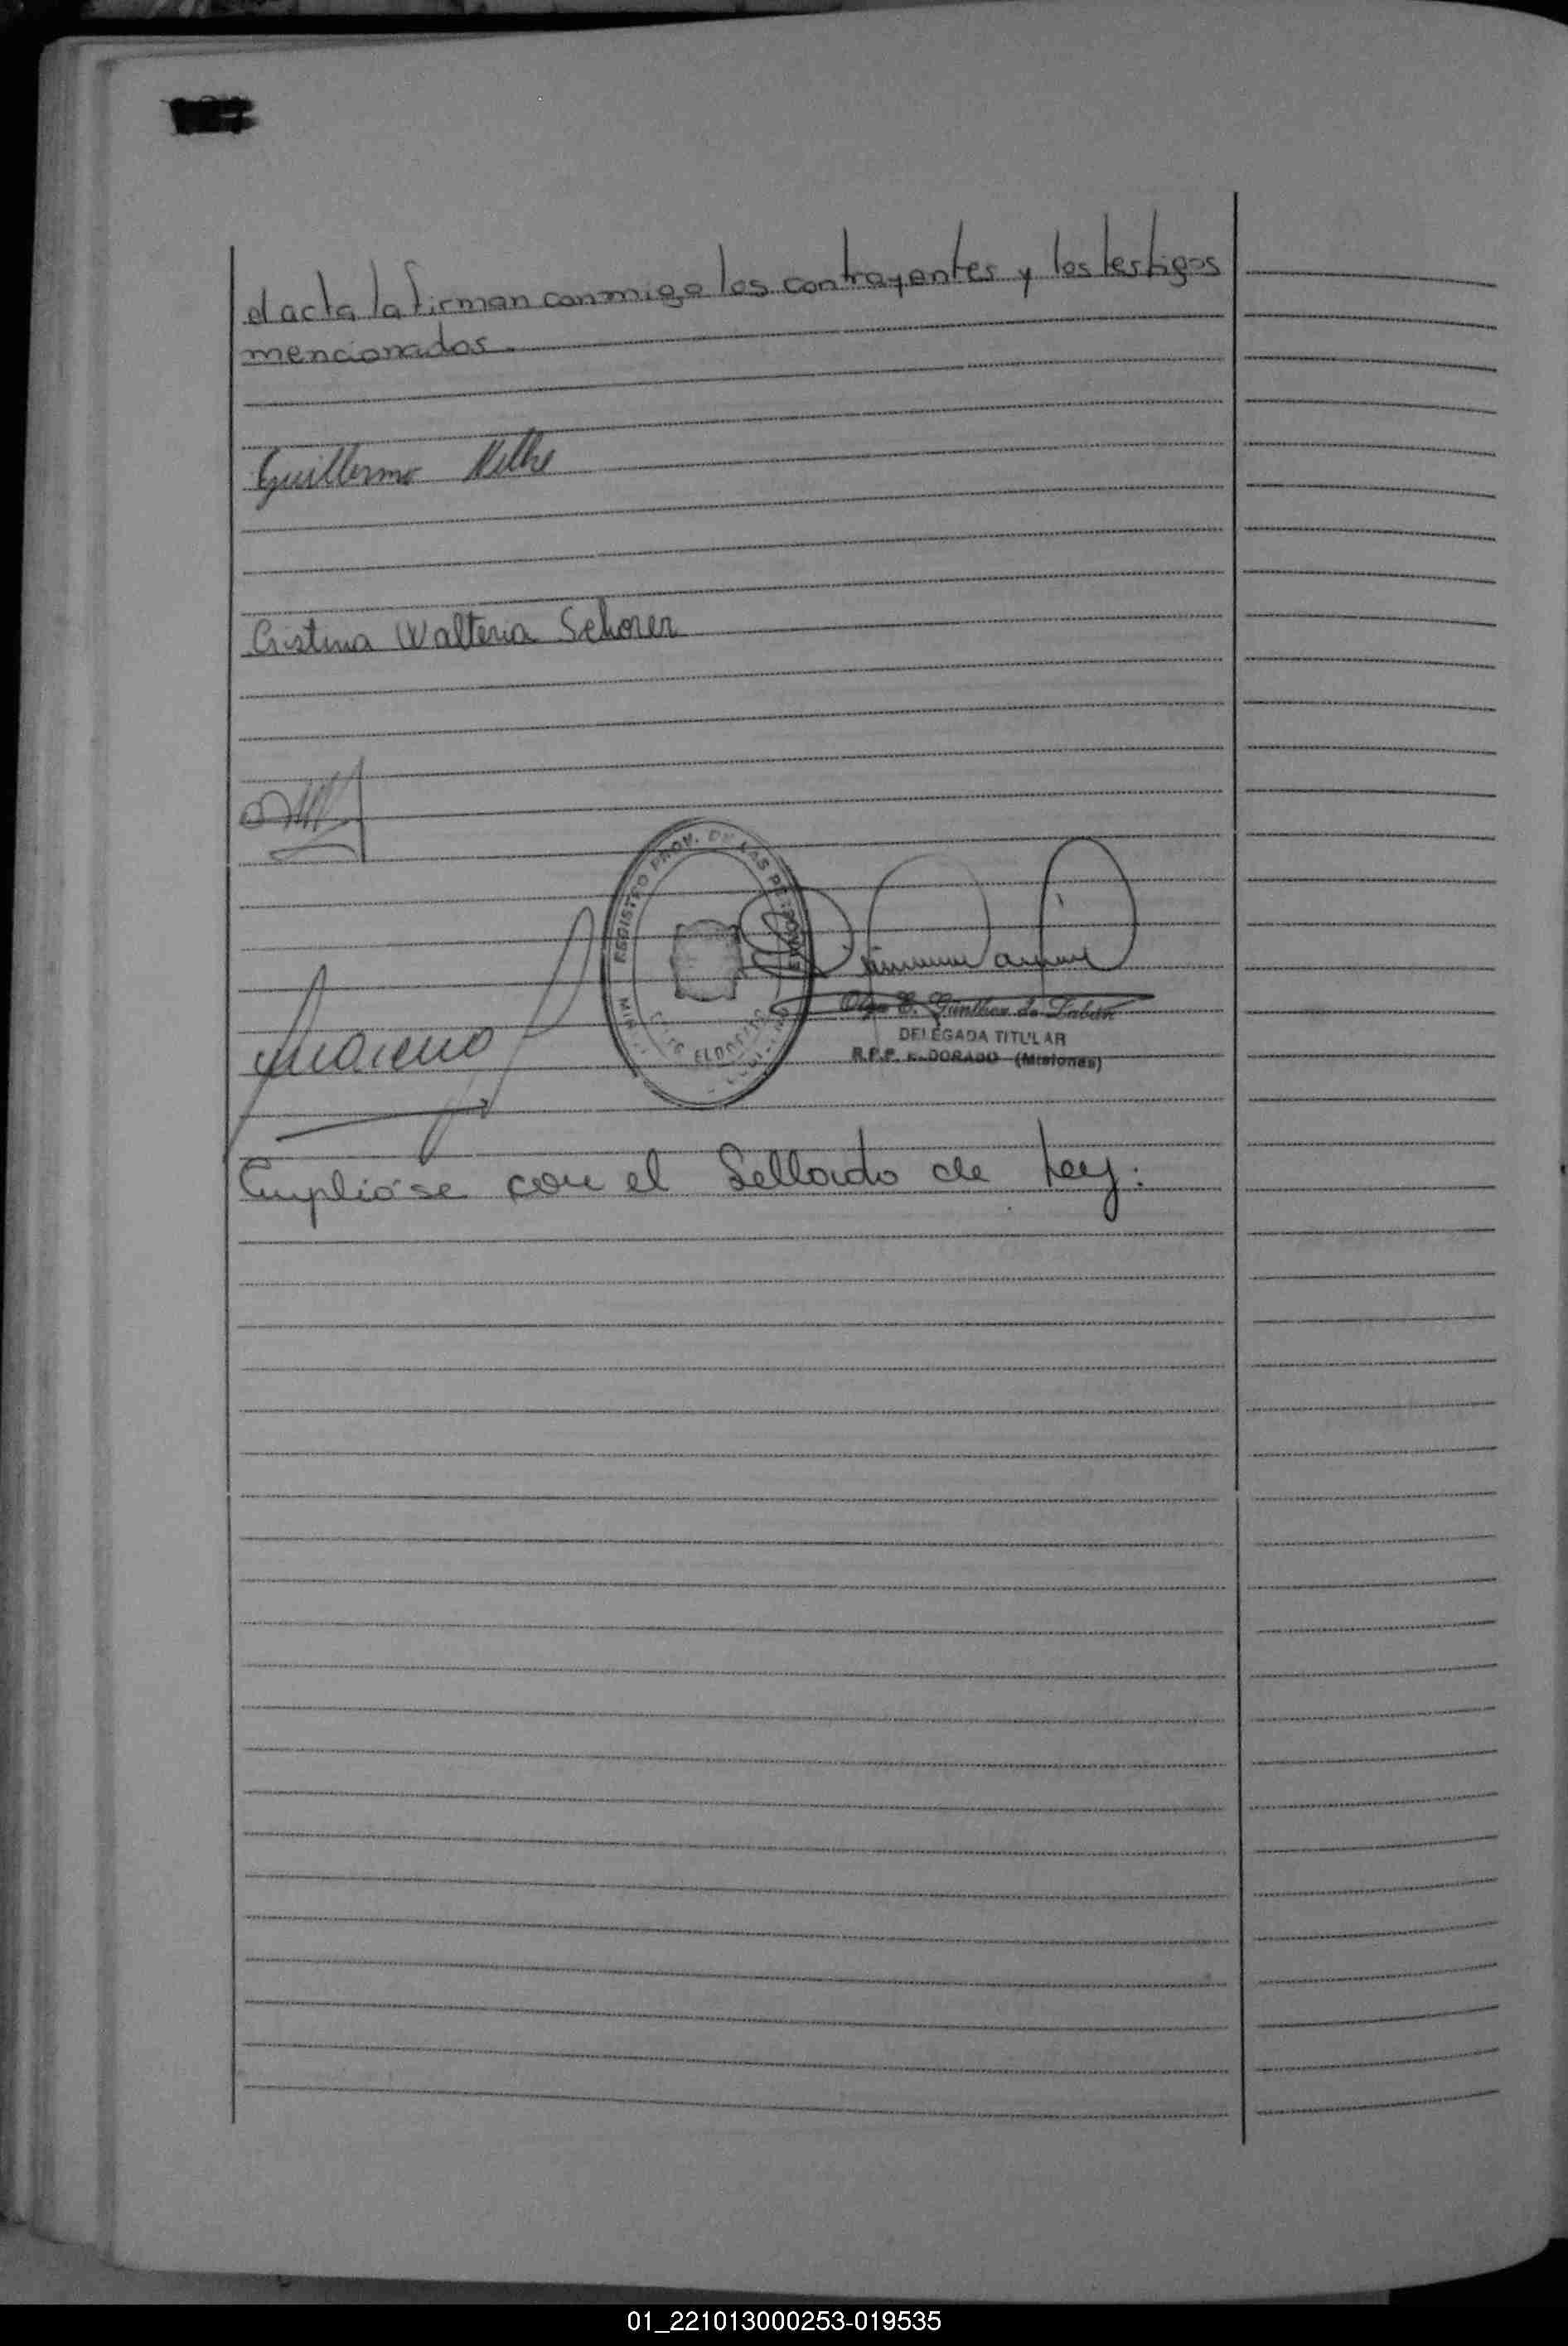 el acta la firman conmigo los contrayentes y los testigos
mencionados.
Guillermo
Cristina Walteria Schorer
REGISTRO PROV. DE LAS PERSONAS
ELDORADO
Olga E. Günther de
DELEGADA TITULAR
R.P.P. ELDORADO (Misiones)
Cumplióse con el Sellado de Ley.
01_221013000253-019535